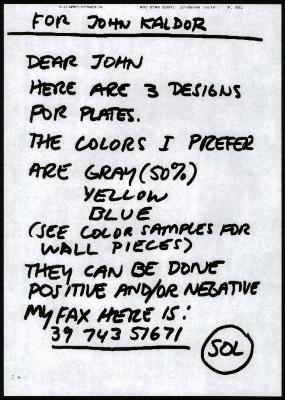 FOR JOHN KALDOR
DEAR JOHN
HERE ARE 3 DESIGNS
FOR PLATES.
THE COLORS I PREFER
ARE GRAY (50%)
YELLOW
BLUE
(SEE COLOR SAMPLES FOR
WALL PIECES)
THEY CAN BE DONE
POSITIVE AND/OR NEGATIVE
MY FAX HERE IS:
39 743 51671
SOL